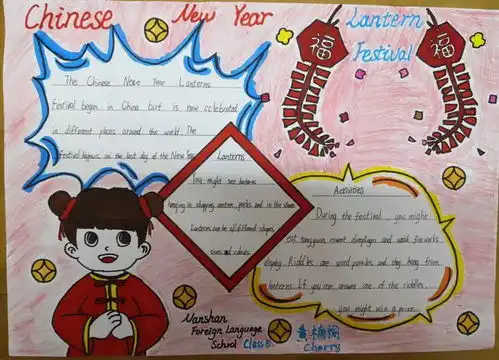 Chinese New Year
Lantern
Festival
福
福
The Chinese New Year Lanterns
Festival began in China but is now celebrated
in different places around the world. The
Festival happens on the last day of the New Year
Lanterns
You might see lanterns
hanging in shopping centres, parks and in the streets
Lanterns can be all different shapes,
sizes and colours
Activities
During the festival, you might
eat tangyuan, sweet dumplings and watch fireworks
display. Riddles are word puzzles and they hang from
lanterns. If you can answer one of the riddles,
you might win a prize
Nanshan
Foreign Language
School Class 5
黄
Cherry